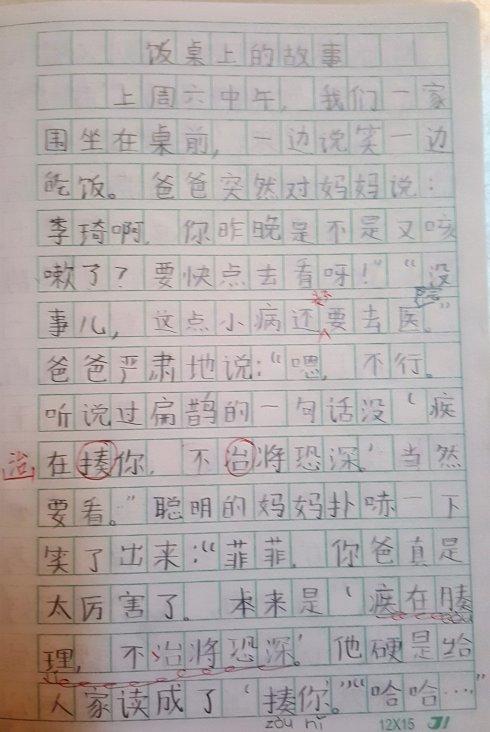 饭桌上的故事
上周六中午，我们一家
围坐在桌前，一边说笑一边
吃饭。爸爸突然对妈妈说：
李琦啊，你昨晚是不是又咳
嗽了？要快点去看呀！”“没
事儿，这点小病还要去医。”
爸爸严肃地说：“嗯，不行。
听说过扁鹊的一句话没‘疾
治 在揍你，不治将恐深’当然
要看。”聪明的妈妈扑哧一下
笑了出来：“菲菲，你爸真是
太厉害了。本来是‘疾在腠
理，不治将恐深。’他硬是给
人家读成了‘揍你。’”“哈哈……”
zòu nǐ 12X15